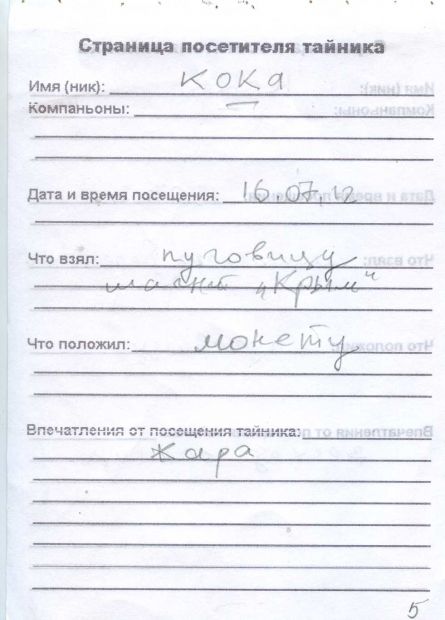 Страница посетителя тайника
Имя (ник): кока
Компаньоны: —
Дата и время посещения: 16.07.12
Что взял: пуговицу
магнит "Крым"
Что положил: монету
Впечатления от посещения тайника:
Жара
5